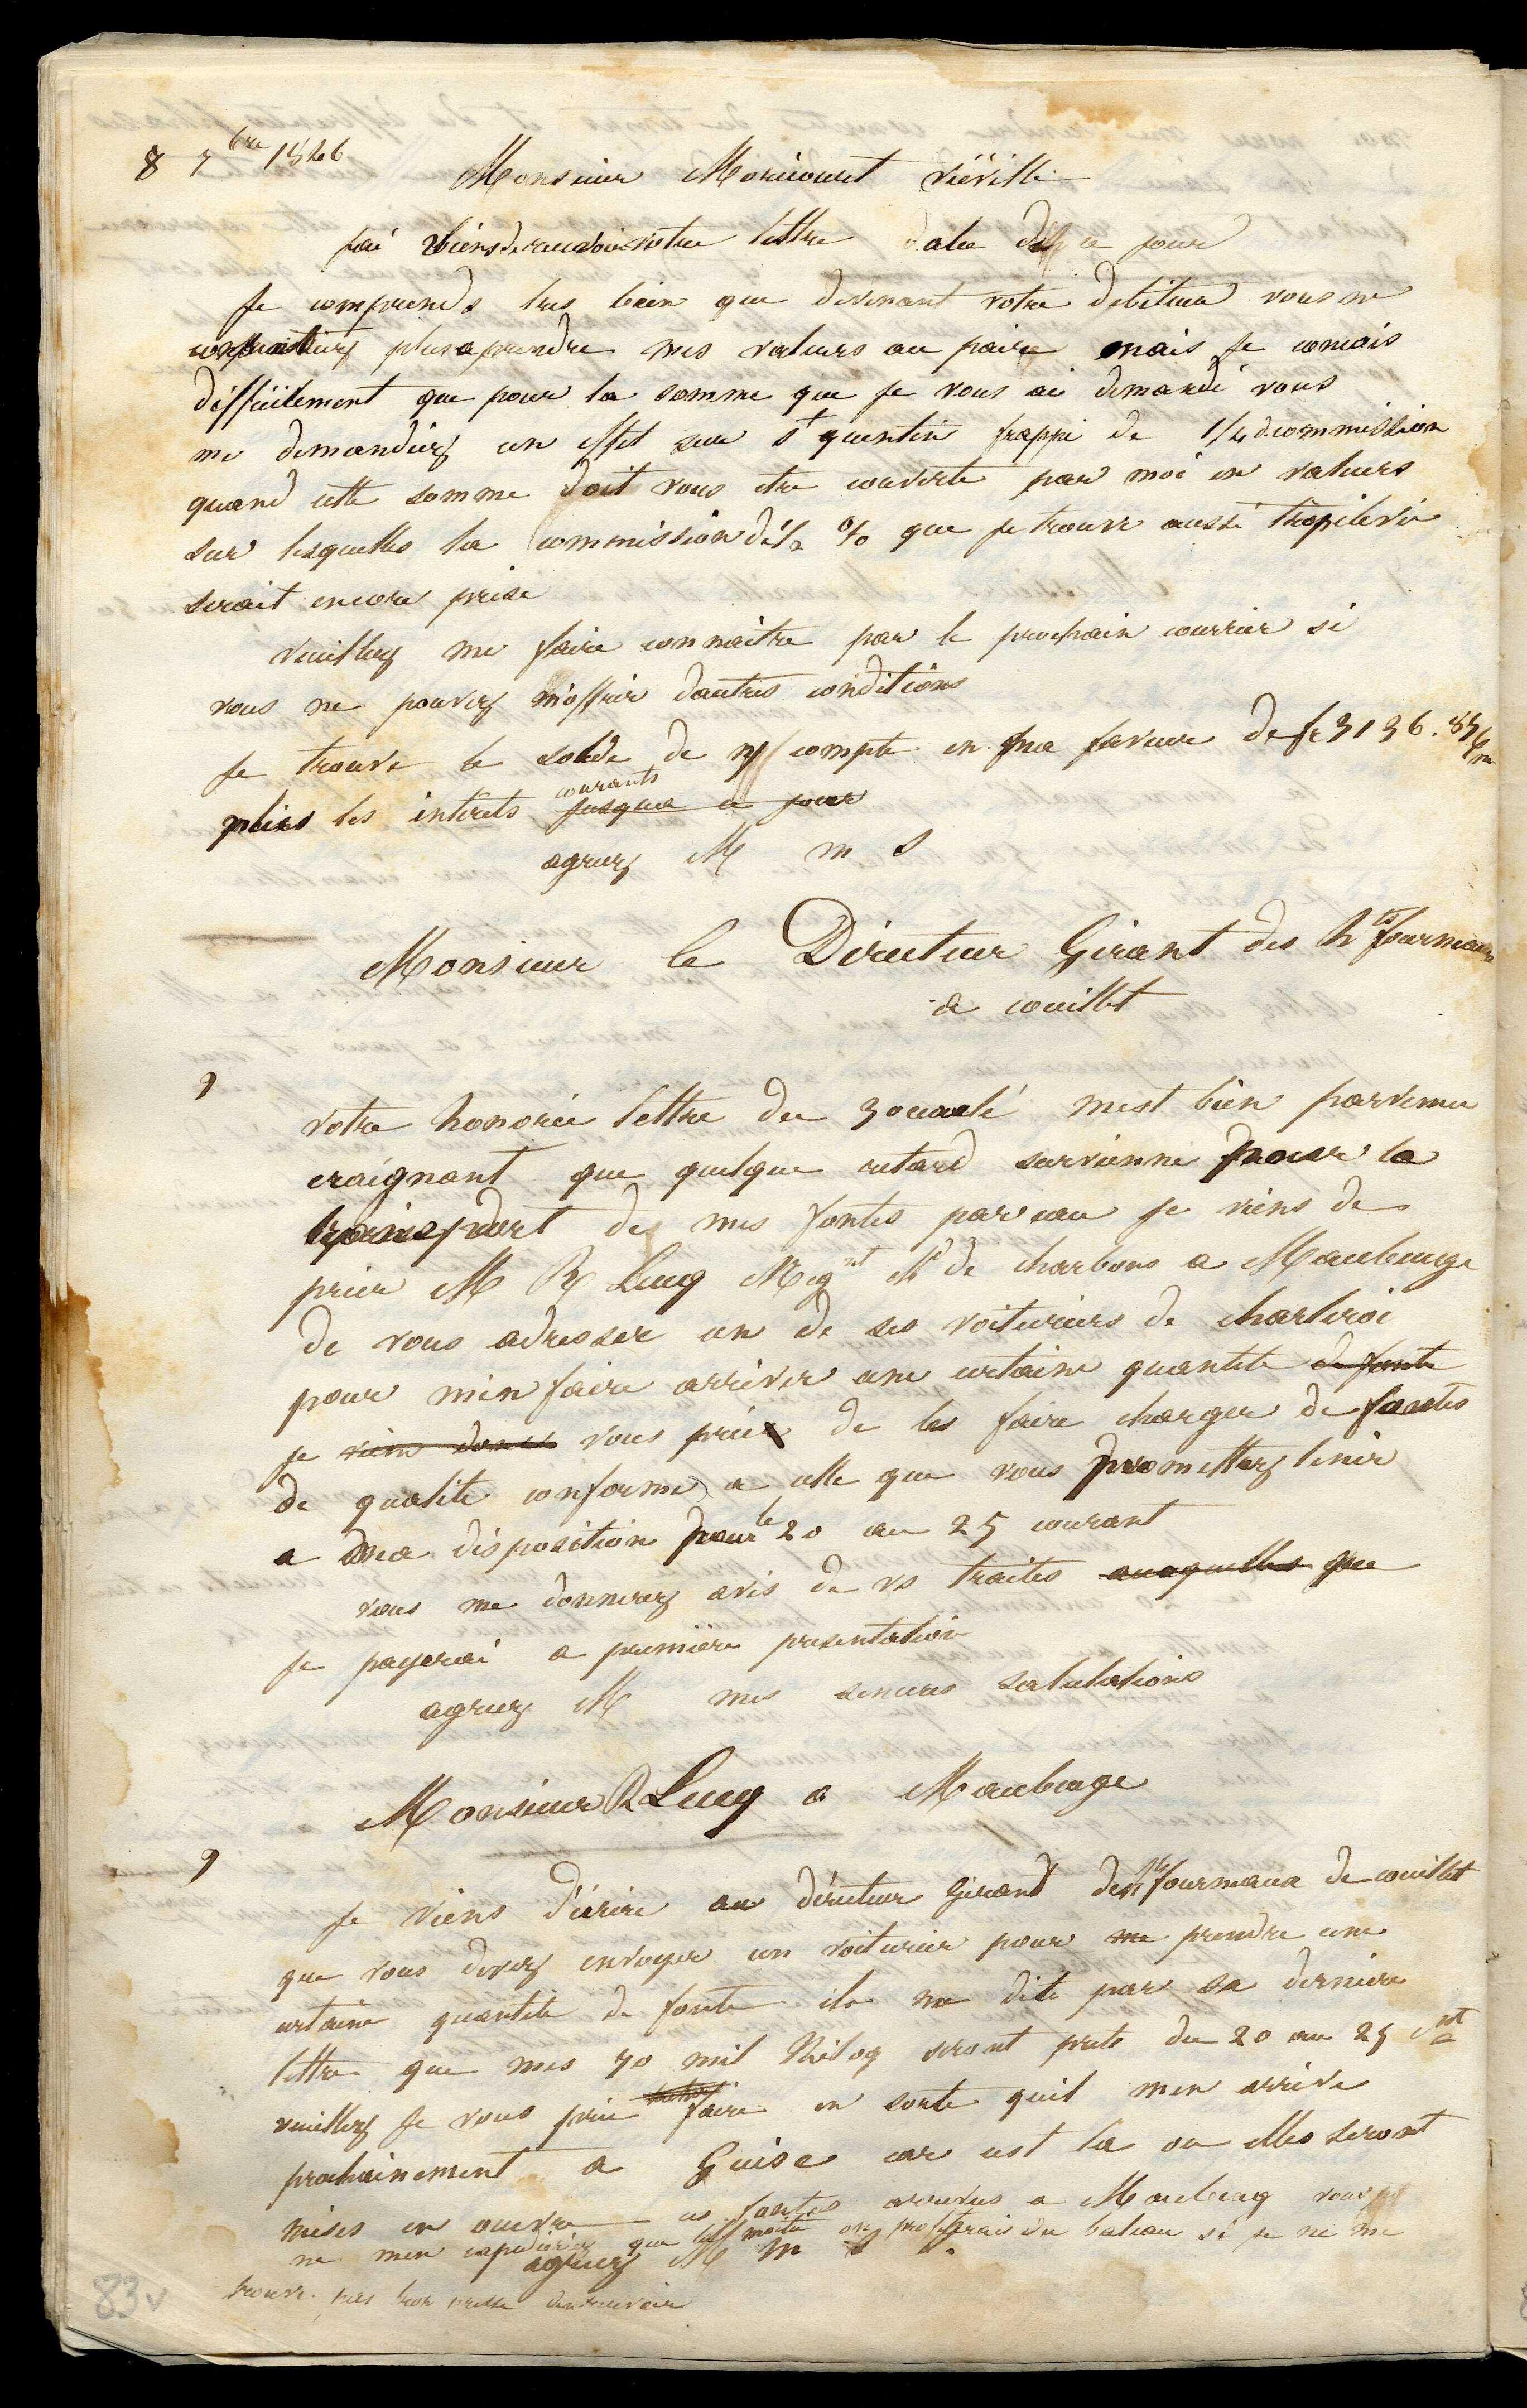 8 7bre 1846
Monsieur Moricourt Viéville
jai viens de recevoir votre lettre datée de ce jour
Je comprends tres bien que devenant votre debiteur vous ne
consentiez plus a prendre mes valeurs au paire mais je concois
difficilement que pour la somme que je vous ai demandé vous
me demandiez un effet sur st quentin frappé de 1/4 de commission
quand cette somme doit vous etre couverte par moi en valeurs
sur lesquelles la commission de 1/2 % que je trouve aussi trop elevé
serait encore prise
Veuillez me faire connaitre par le prochain courrier si
vous ne pouvez m'offrir dautres conditions
Je trouve le solde de n/ compte en ma faveur de fr 3136.85
plus les intérets courants jusqua ce jour
agreez M m S
Monsieur le Directeur Gérant des hts fourneaux
de couillet
9
votre honorée lettre du 30 mest bien parvenue
craignant que quelque retard survienne pour le
transport de mes fontes par eau je viens de
prier M R Lucq Negnt Md de charbons a Maubeuge
de vous adresser un de ses voituriers de charleroi
pour men faire arriver une certaine quantité de fonte
je viens donc vous prier de les faire charger de fontes
de qualité conforme a celle que vous promettez tenir
a ma disposition pour le 20 au 25 courant
vous me donnerez avis de vs traites auxquelles que
je payerai a première présentation
agreez M mes sincères salutations
Monsieur R Lucq a Maubeuge
9
Je viens d'écrire au directeur Gérant des hts fourneaux de couillet
que vous devez envoyer un voiturier pour me prendre une
certaine quantité de fonte il ma dit par sa derniere
lettre que mes 70 mil Kilog seront prets du 20 au 25 ct
veuillez je vous prie faire en sorte quil men arrive
prochainement a Guise car cest la ou elles seront
mises en ouvre ces fontes arrivées a Maubeug vous
ne men expedieriez que moitié on profiterais du bateau si je ne me
agreez M m s
trouve pas trop pressé den avoir
83v